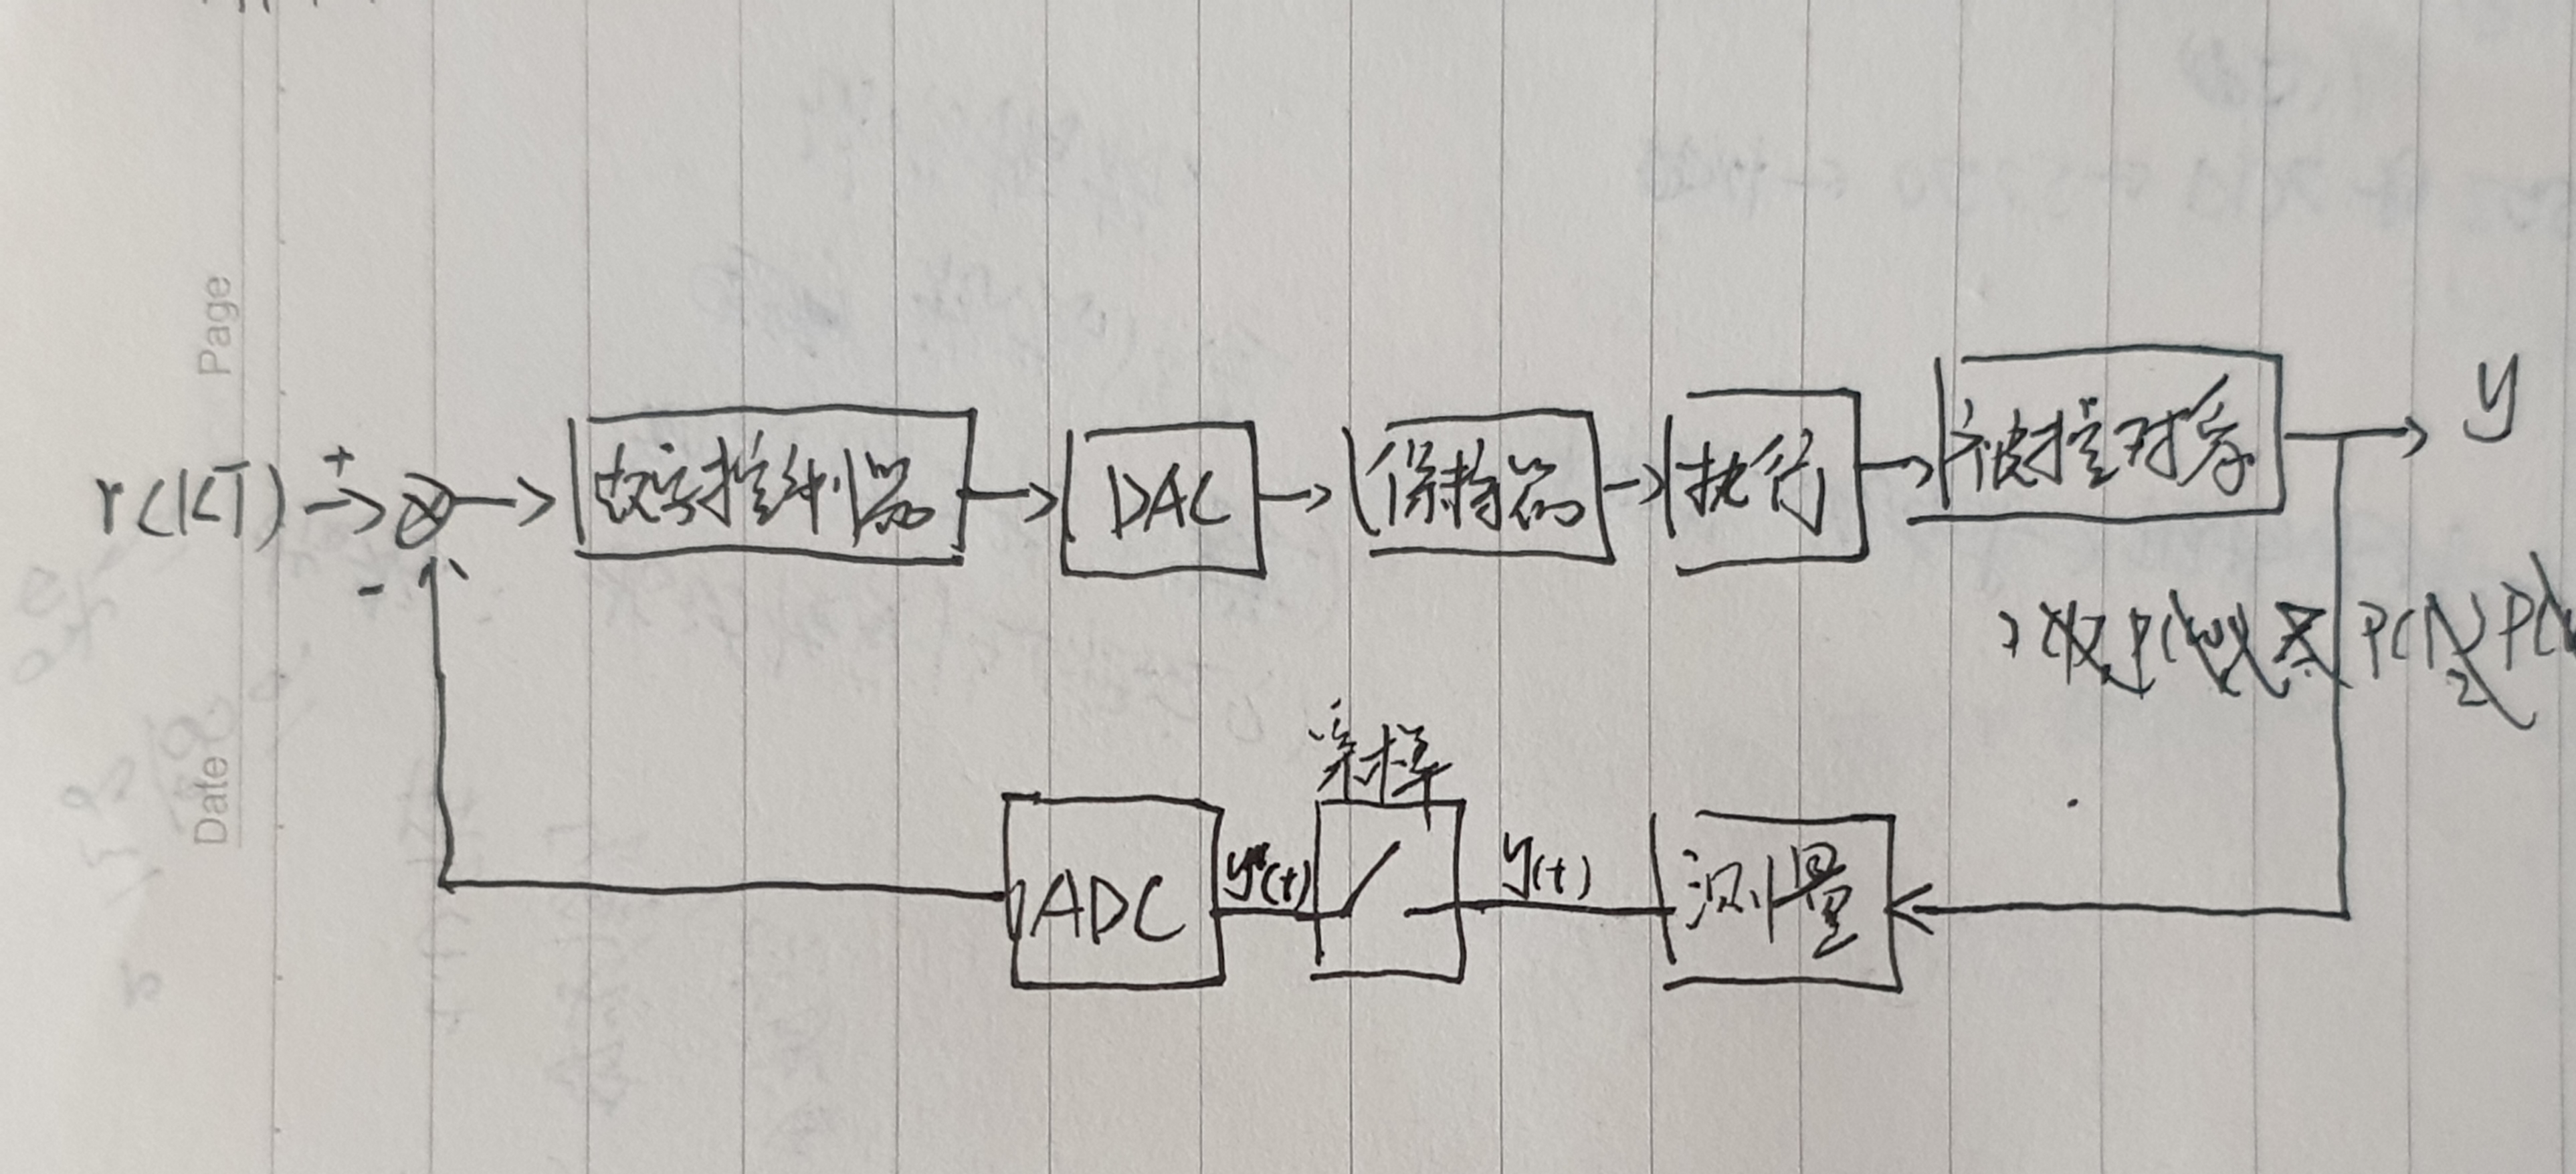 Page
Date
r(KT) + - 数字控制器 DAC 保持器 执行 被控对象 y
采样
ADC y*(t) y(t) 测量